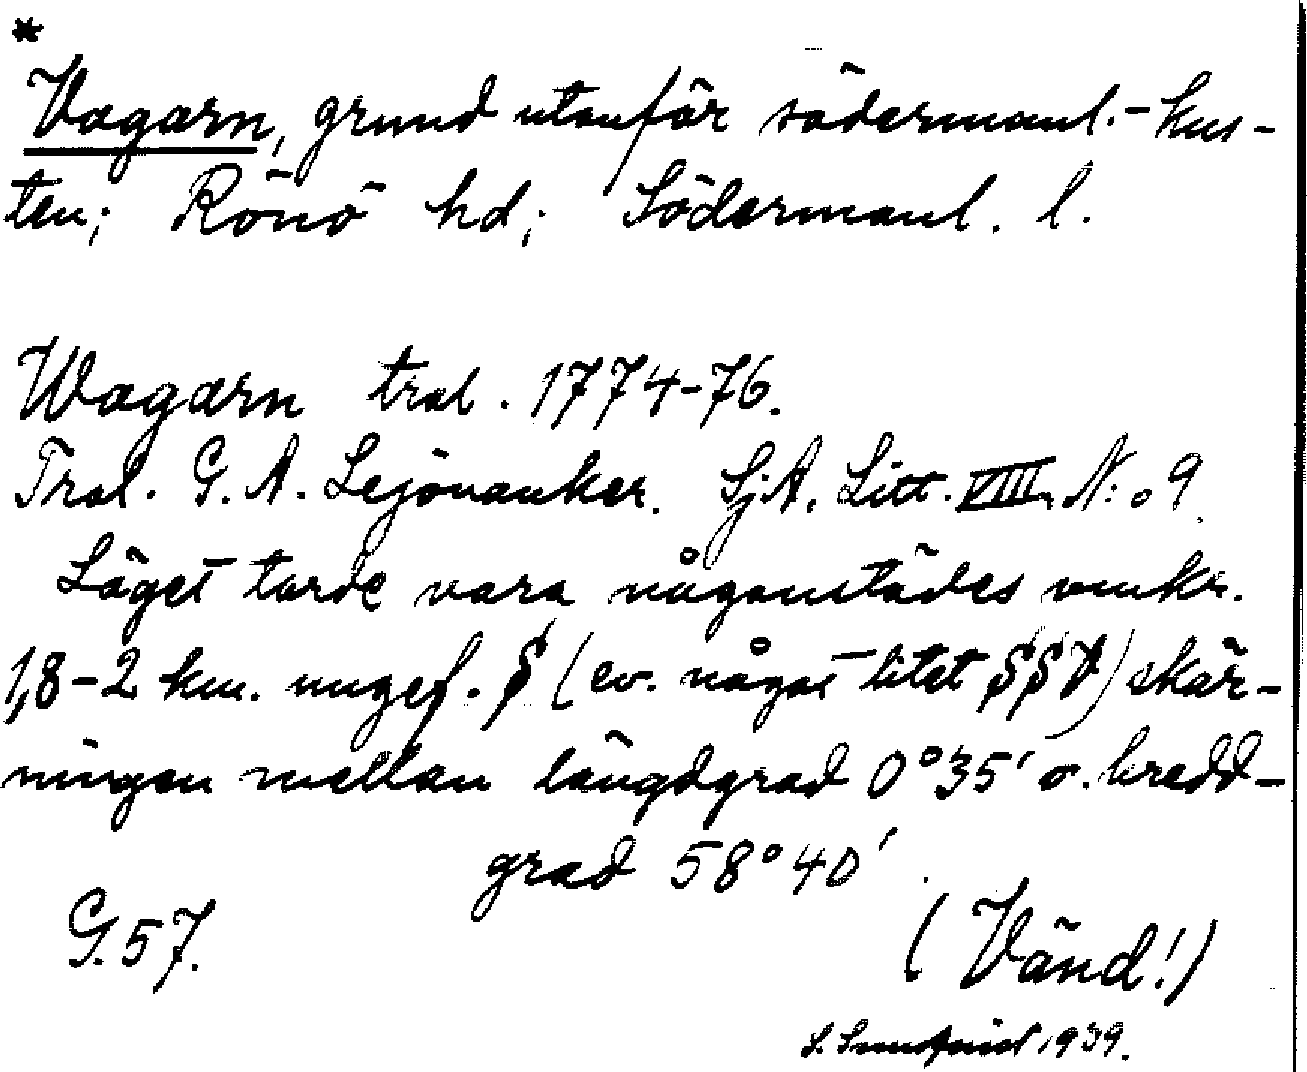 *
Vagarn, grund utanför södermanl.-kus-
ten; Rönö hd; Södermanl. l.
Wagarn tral. 1774-76.
Tral. G. A. Lejonanker. SjA. Litt. VIII. N:o 9
Läget torde vara någonstädes omkr.
1,8-2 km. ungef. S (ev. något litet SSV) skär-
ningen mellan längdgrad 0°35' o. bredd-
grad 58°40'
G. 57.
(Vänd!)
1939.